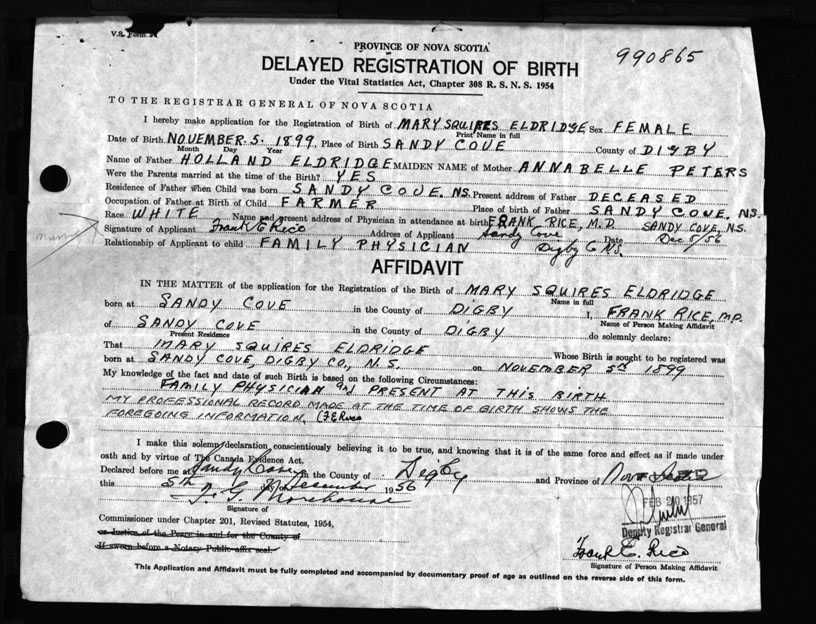 V.S. Form
PROVINCE OF NOVA SCOTIA
990865
DELAYED REGISTRATION OF BIRTH
Under the Vital Statistics Act, Chapter 308 R. S. N. S. 1954
TO THE REGISTRAR GENERAL OF NOVA SCOTIA
I hereby make application for the Registration of Birth of MARY SQUIRES ELDRIDGE Sex FEMALE
Print Name in full
Date of Birth NOVEMBER. 5. 1899, Place of Birth SANDY COVE County of DIGBY
Month Day Year
Name of Father HOLLAND ELDRIDGE MAIDEN NAME of Mother ANNABELLE PETERS
Were the Parents married at time of the Birth? YES
Residence of Father when Child was born SANDY COVE. NS. Present address of Father DECEASED
Occupation of Father at Birth of Child FARMER Place of birth of Father SANDY COVE, NS.
Race WHITE Name and present address of Physician in attendance at birth FRANK RICE, M.D. SANDY COVE, N.S.
Signature of Applicant Frank E Rice Address of Applicant Sandy Cove Date Dec 5/56
Relationship of Applicant to child FAMILY PHYSICIAN Digby Co N.S.
AFFIDAVIT
IN THE MATTER of the application for the Registration of the Birth of MARY SQUIRES ELDRIDGE
Name in full
born at SANDY COVE in the County of DIGBY I, FRANK RICE, M.D.
Name of Person Making Affidavit
of SANDY COVE in the County of DIGBY do solemnly declare:
Present Residence
That MARY SQUIRES ELDRIDGE Whose Birth is sought to be registered was
born at SANDY COVE, DIGBY CO., N.S. on NOVEMBER 5th 1899
My knowledge of the fact and date of such Birth is based on the following Circumstances:
FAMILY PHYSICIAN and PRESENT AT THIS BIRTH
MY PROFESSIONAL RECORD MADE AT THE TIME OF BIRTH SHOWS THE
FOREGOING INFORMATION. (F E Rice
I make this solemn declaration conscientiously believing it to be true, and knowing that it is of the same force and effect as if made under
oath and by virtue of The Canada Evidence Act.
Declared before me at Sandy Cove in the County of Digby and Province of Nova Scotia
this 5th day of December 1956
FEB 20 1957
Signature of
Deputy Registrar General
Commissioner under Chapter 201, Revised Statutes, 1954,
or Justice of the Peace in and for the County of
If sworn before a Notary Public affix seal.
Frank E. Rice
Signature of Person Making Affidavit
This Application and Affidavit must be fully completed and accompanied by documentary proof of age as outlined on the reverse side of this form.